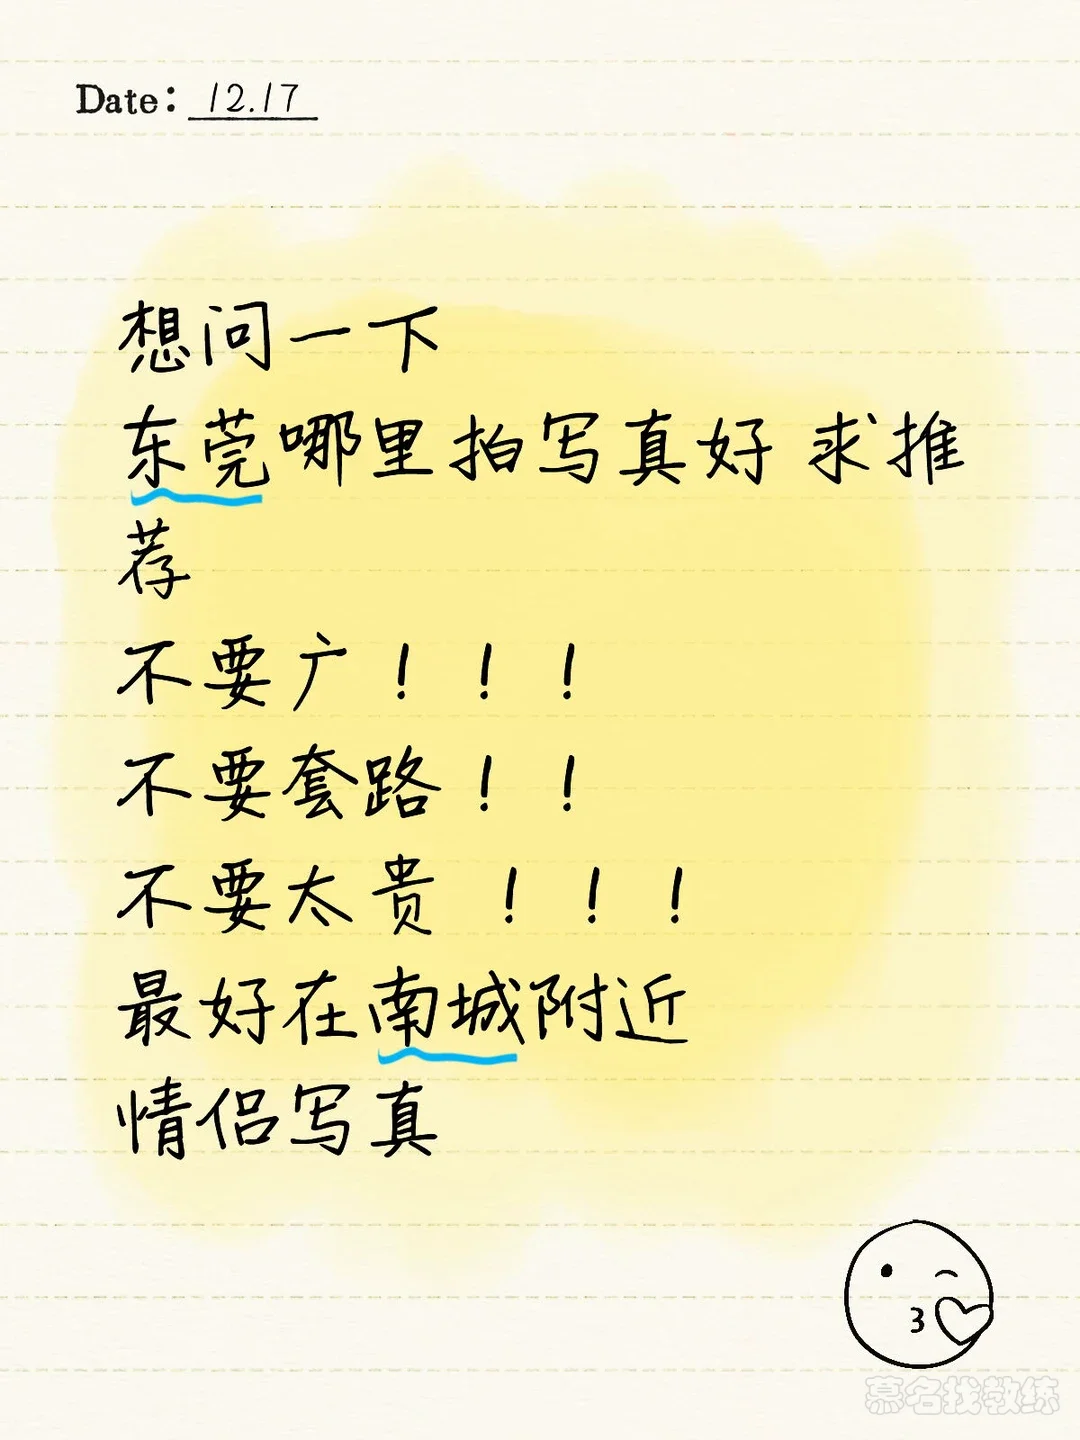 Date: 12.17
想问一下
东莞哪里拍写真好 求推
荐
不要广！！！
不要套路！！
不要太贵！！！
最好在南城附近
情侣写真
慕名找教练